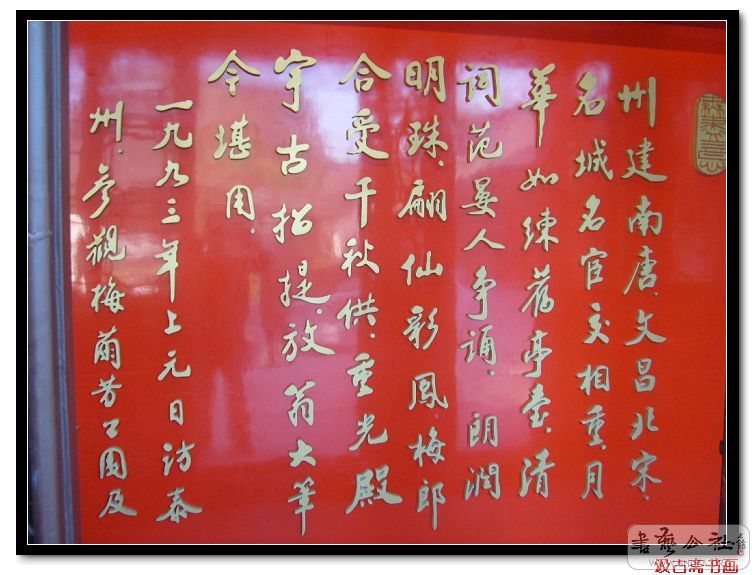 州建南唐文昌北宋、
名城名宦交相重、月
華如練舊亭臺、清
词范晏人争诵、朗润
明珠、翩仙彩鳳、梅郎
合受千秋供、重光殿
宇古招提、放翁大筆
今堪用、
一九九三年上元日訪泰
州、参觀梅蘭芳公园及
書藝公社
汲古斋书画